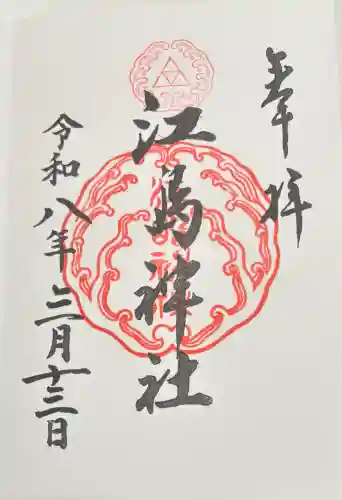 奉拝
江島神社
令和八年三月十三日